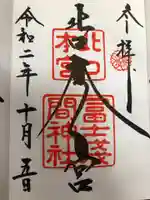 参拝
北口本宮
北口
本宮
冨士浅
間神社
令和二年十月五日